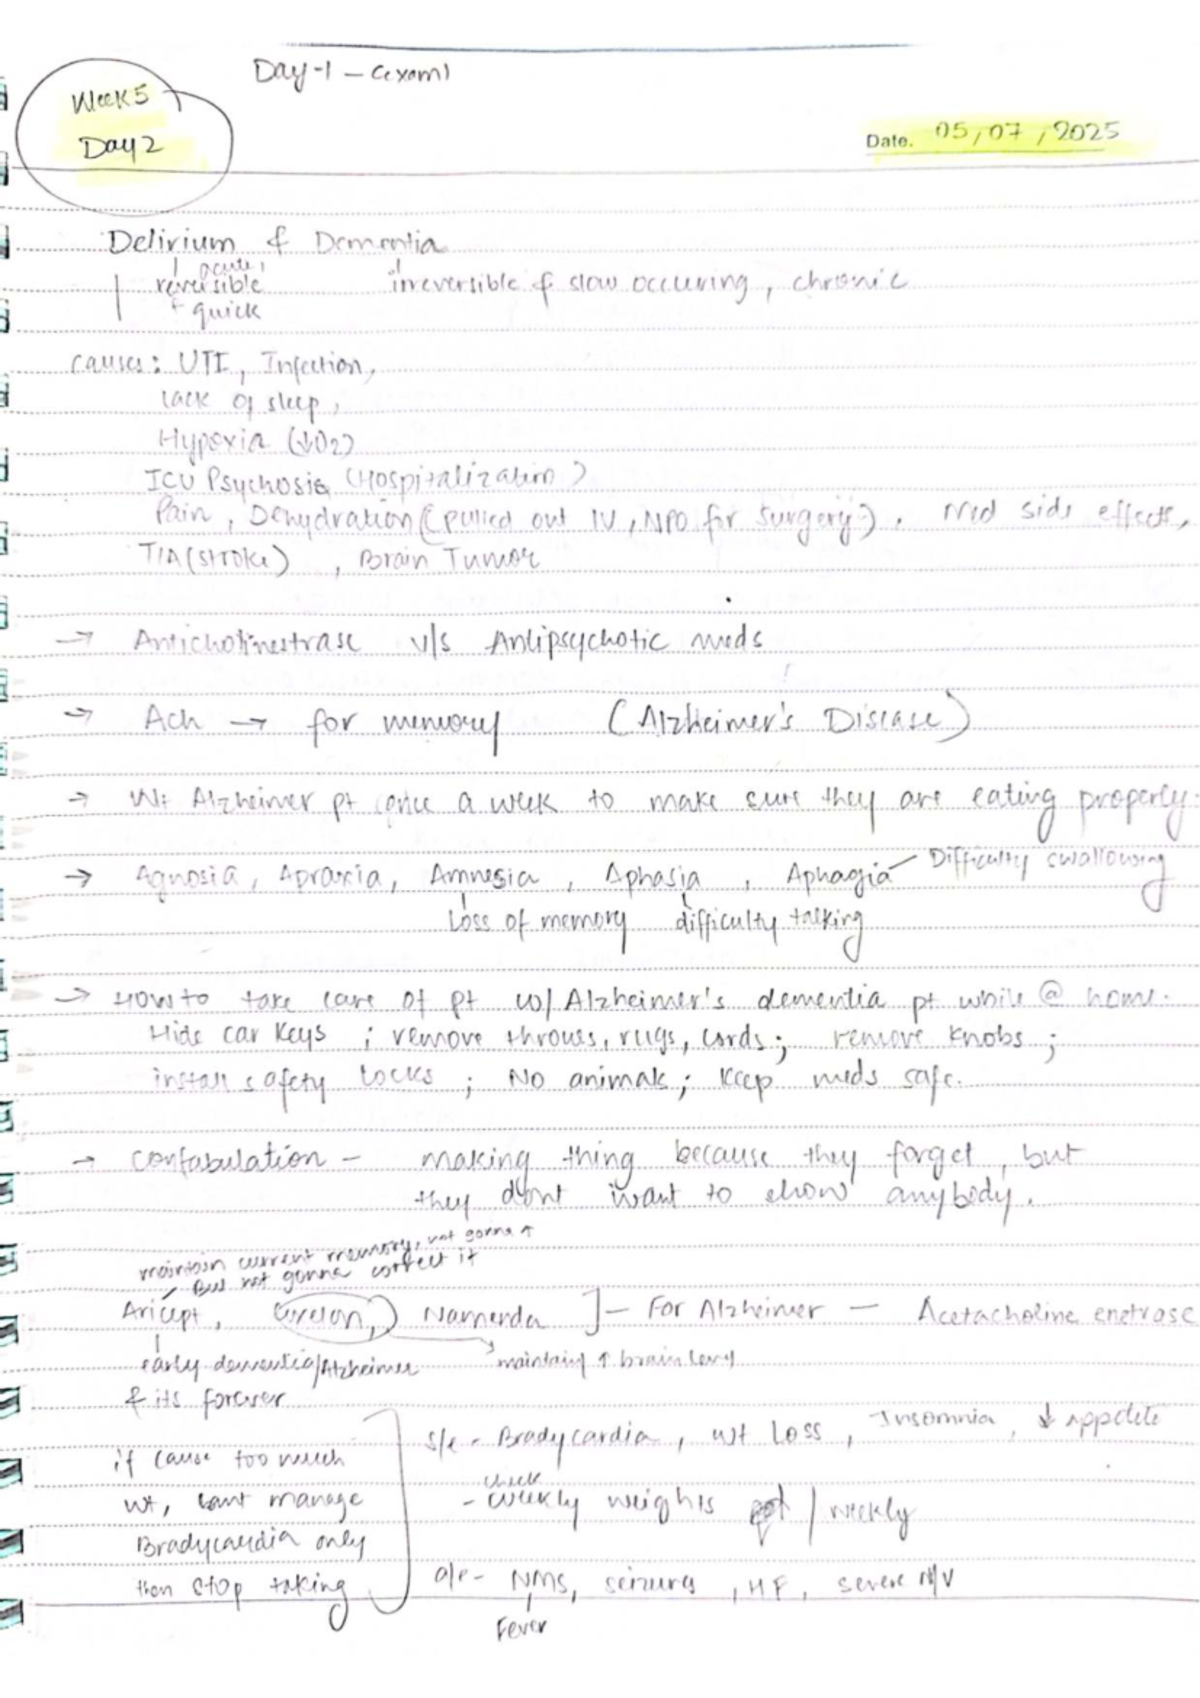 Day-1 – (exam)
Week 5
Day 2
Date. 05/07/2025
Delirium & Dementia
acute,
reversible
+ quick
irreversible & slow occuring, chronic
Causes: UTI, Infection,
Lack of sleep,
Hypoxia (↓O2)
ICU Psychosis (Hospitalization)
Pain, Dehydration (pulled out IV, NPO for surgery), Med side effects,
TIA (stroke), Brain Tumor
→ Anticholinestrase v/s Antipsychotic meds
→ Ach → for memory (Alzheimer's Disease)
→ Wt Alzheimer pt once a week to make sure they are eating properly.
→ Agnosia, Apraxia, Amnesia, Aphasia, Aphagia – Difficulty swallowing
Loss of memory difficulty talking
→ How to take care of pt w/ Alzheimer's dementia pt while @ home.
Hide car keys ; remove throws, rugs, cords; remove knobs ;
install safety locks ; No animals; Keep meds safe.
→ Confabulation – making thing because they forget, but
they dont want to show anybody.
maintain current memory, not gonna ↑
But not gonna correct it
Aricept, Exelon, Namenda ]– For Alzheimer – Acetacholine enetrase
early dementia/Alzheimer maintaing ↑ brain
& its forever
if cause too much
wt, cant manage
Bradycardia only
then stop taking
s/e - Bradycardia, wt Loss, Insomnia, ↓ appetite
check
- weekly weights / weekly
a/e - NMS, seizures, HF, severe N/V
Fever